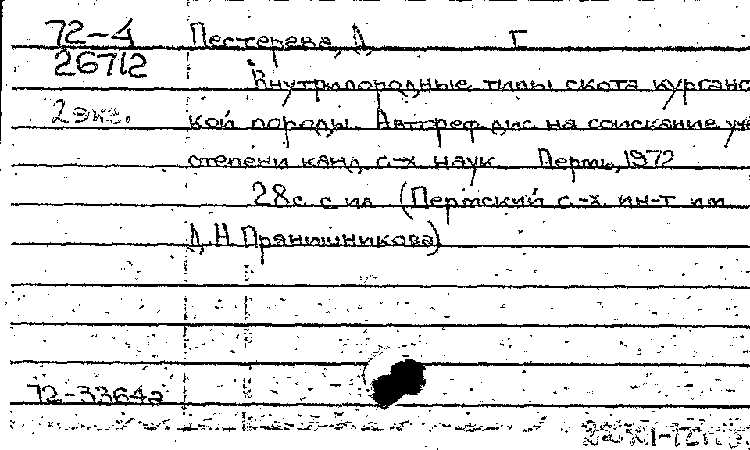 72-4 Пестерева, Д Г
26712
Внутрипородные типы скота курганс
2 экз.
кой породы. Автореф дис на соискание уче
степени канд с-х наук Пермь, 1972
28с. с ил (Пермский с.-х. ин-т им
Д.Н. Прянишникова)
72-33642